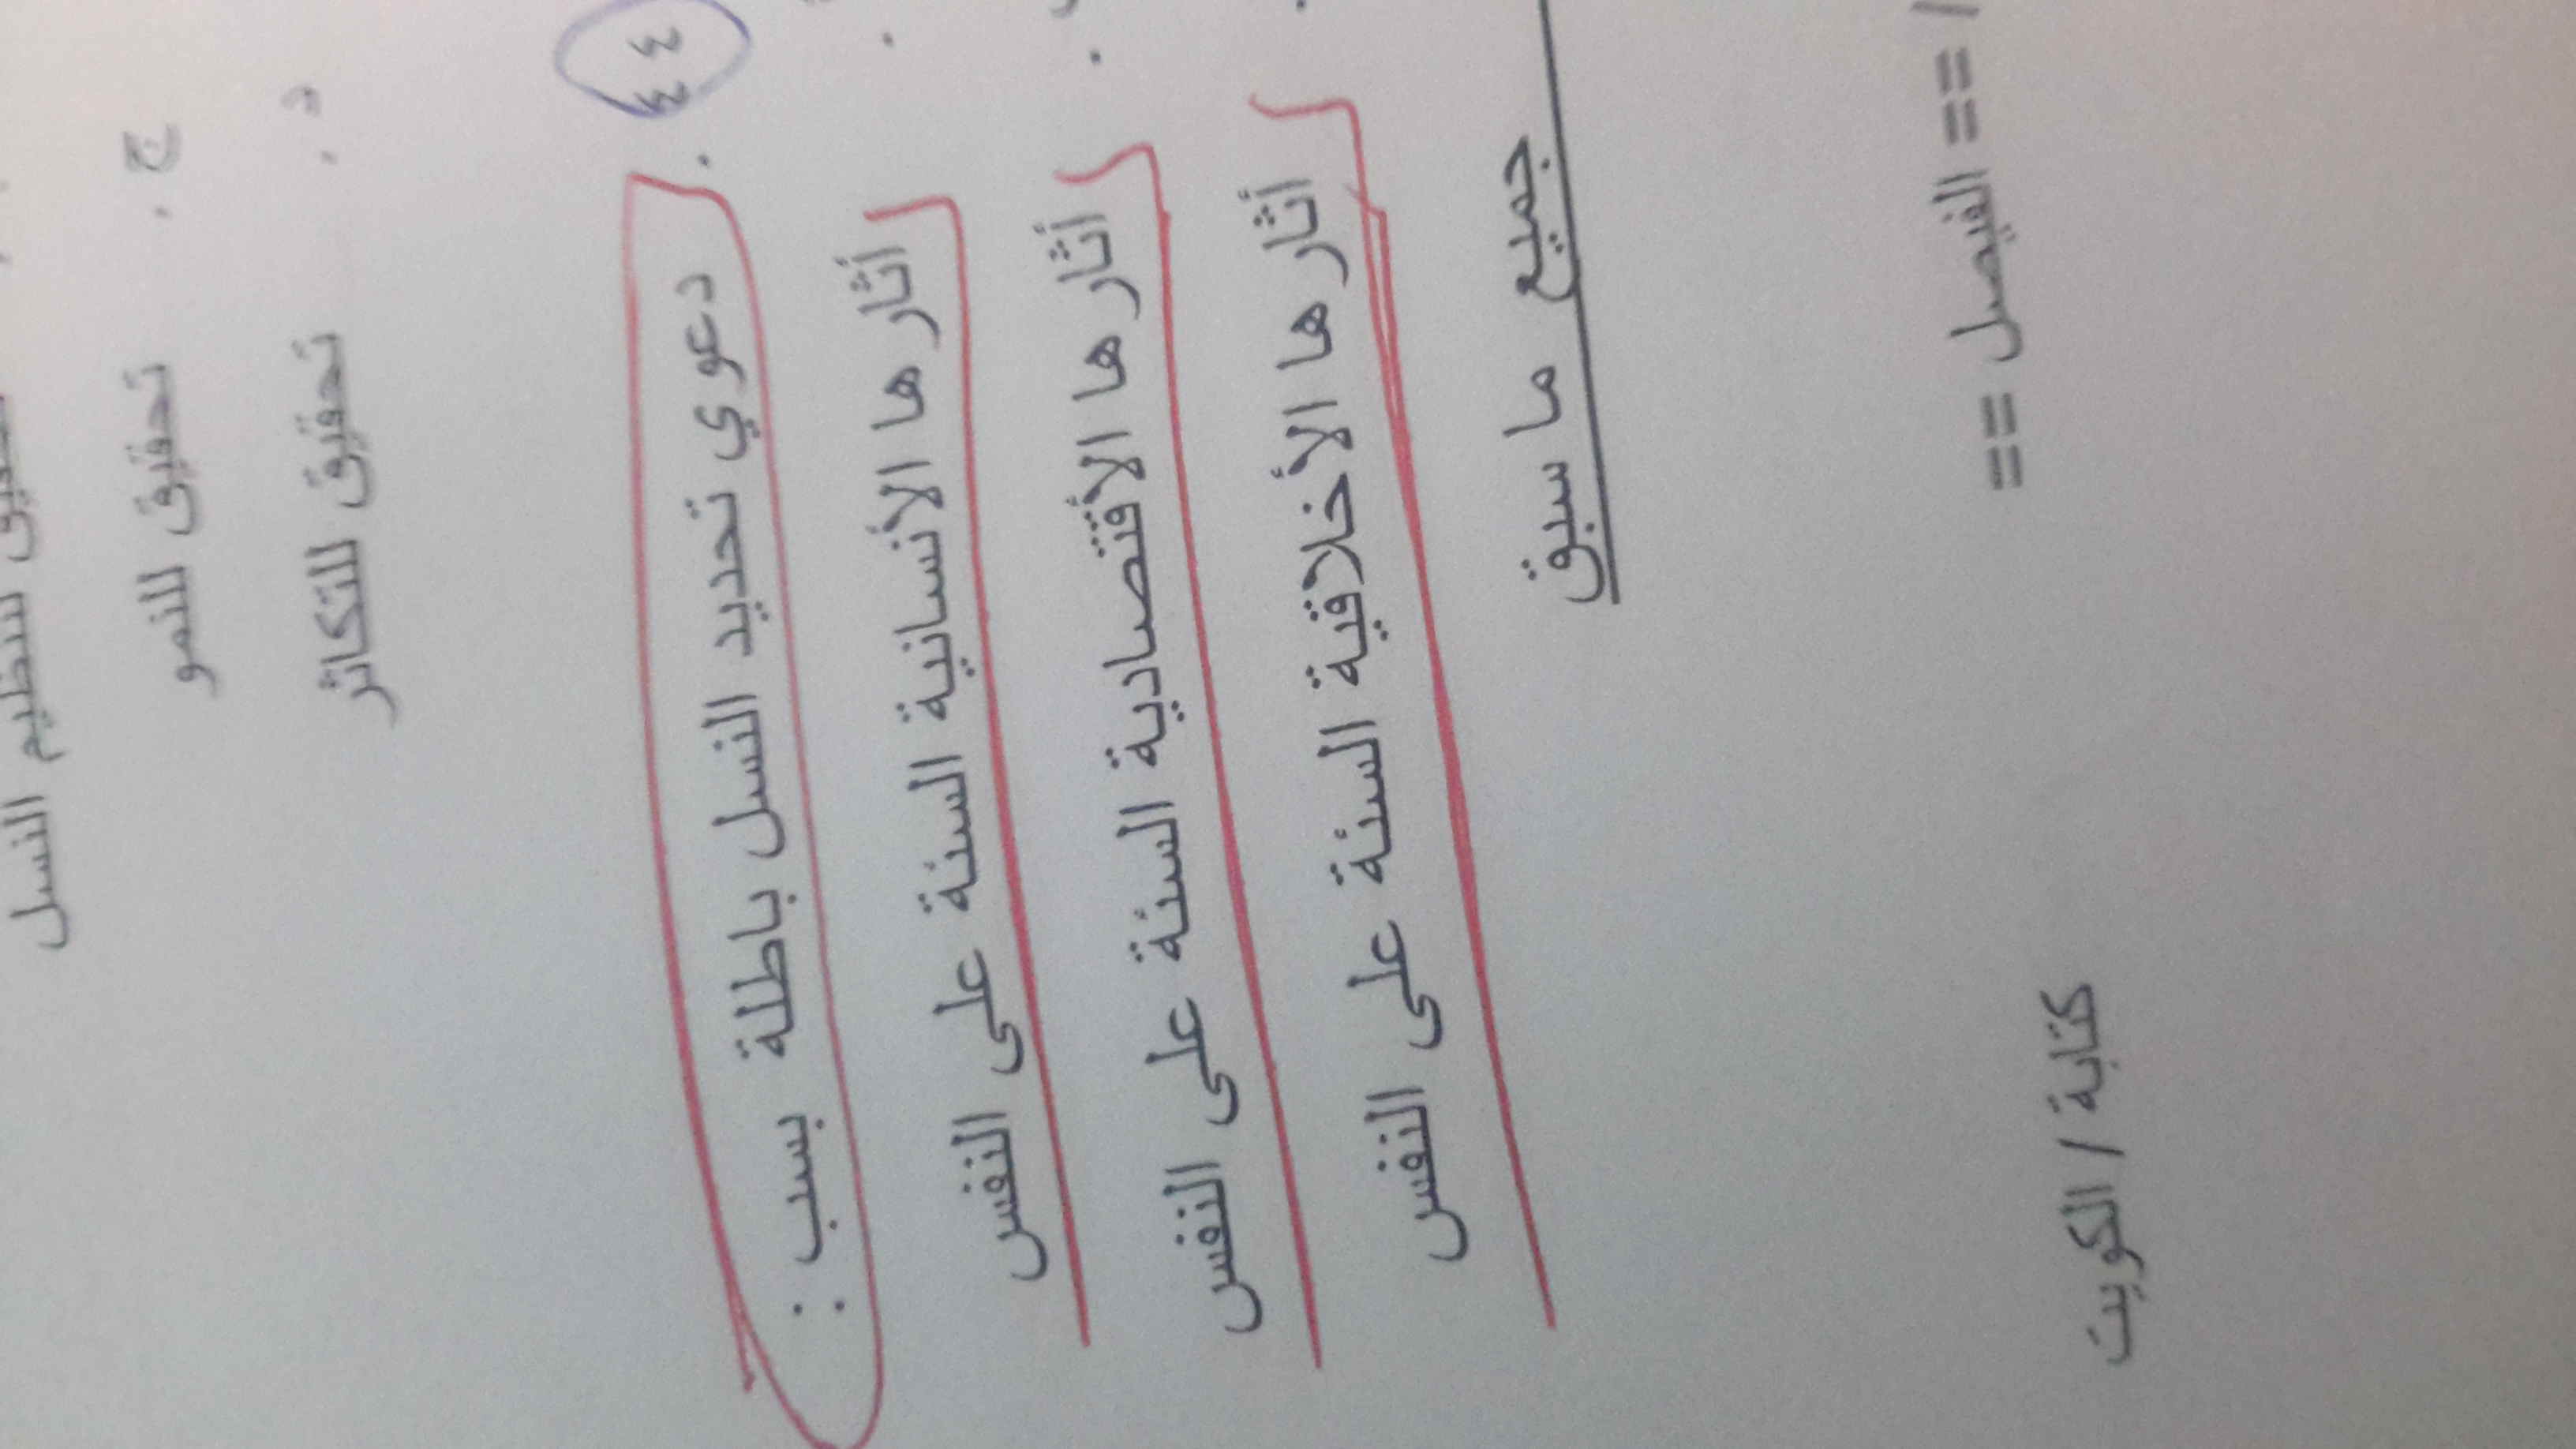 لتنظيم النسل
ج . تحقيق للنمو
د . تحقيق للتكاثر
٤٤ . دعوي تحديد النسل باطلة بسبب :
أثارها الأنسانية السئة على النفس
أثارها الأقتصادية السئة على النفس
أثارها الأخلاقية السئة على النفس
جميع ما سبق
/ == الفيصل ==
كتابة / الكويت